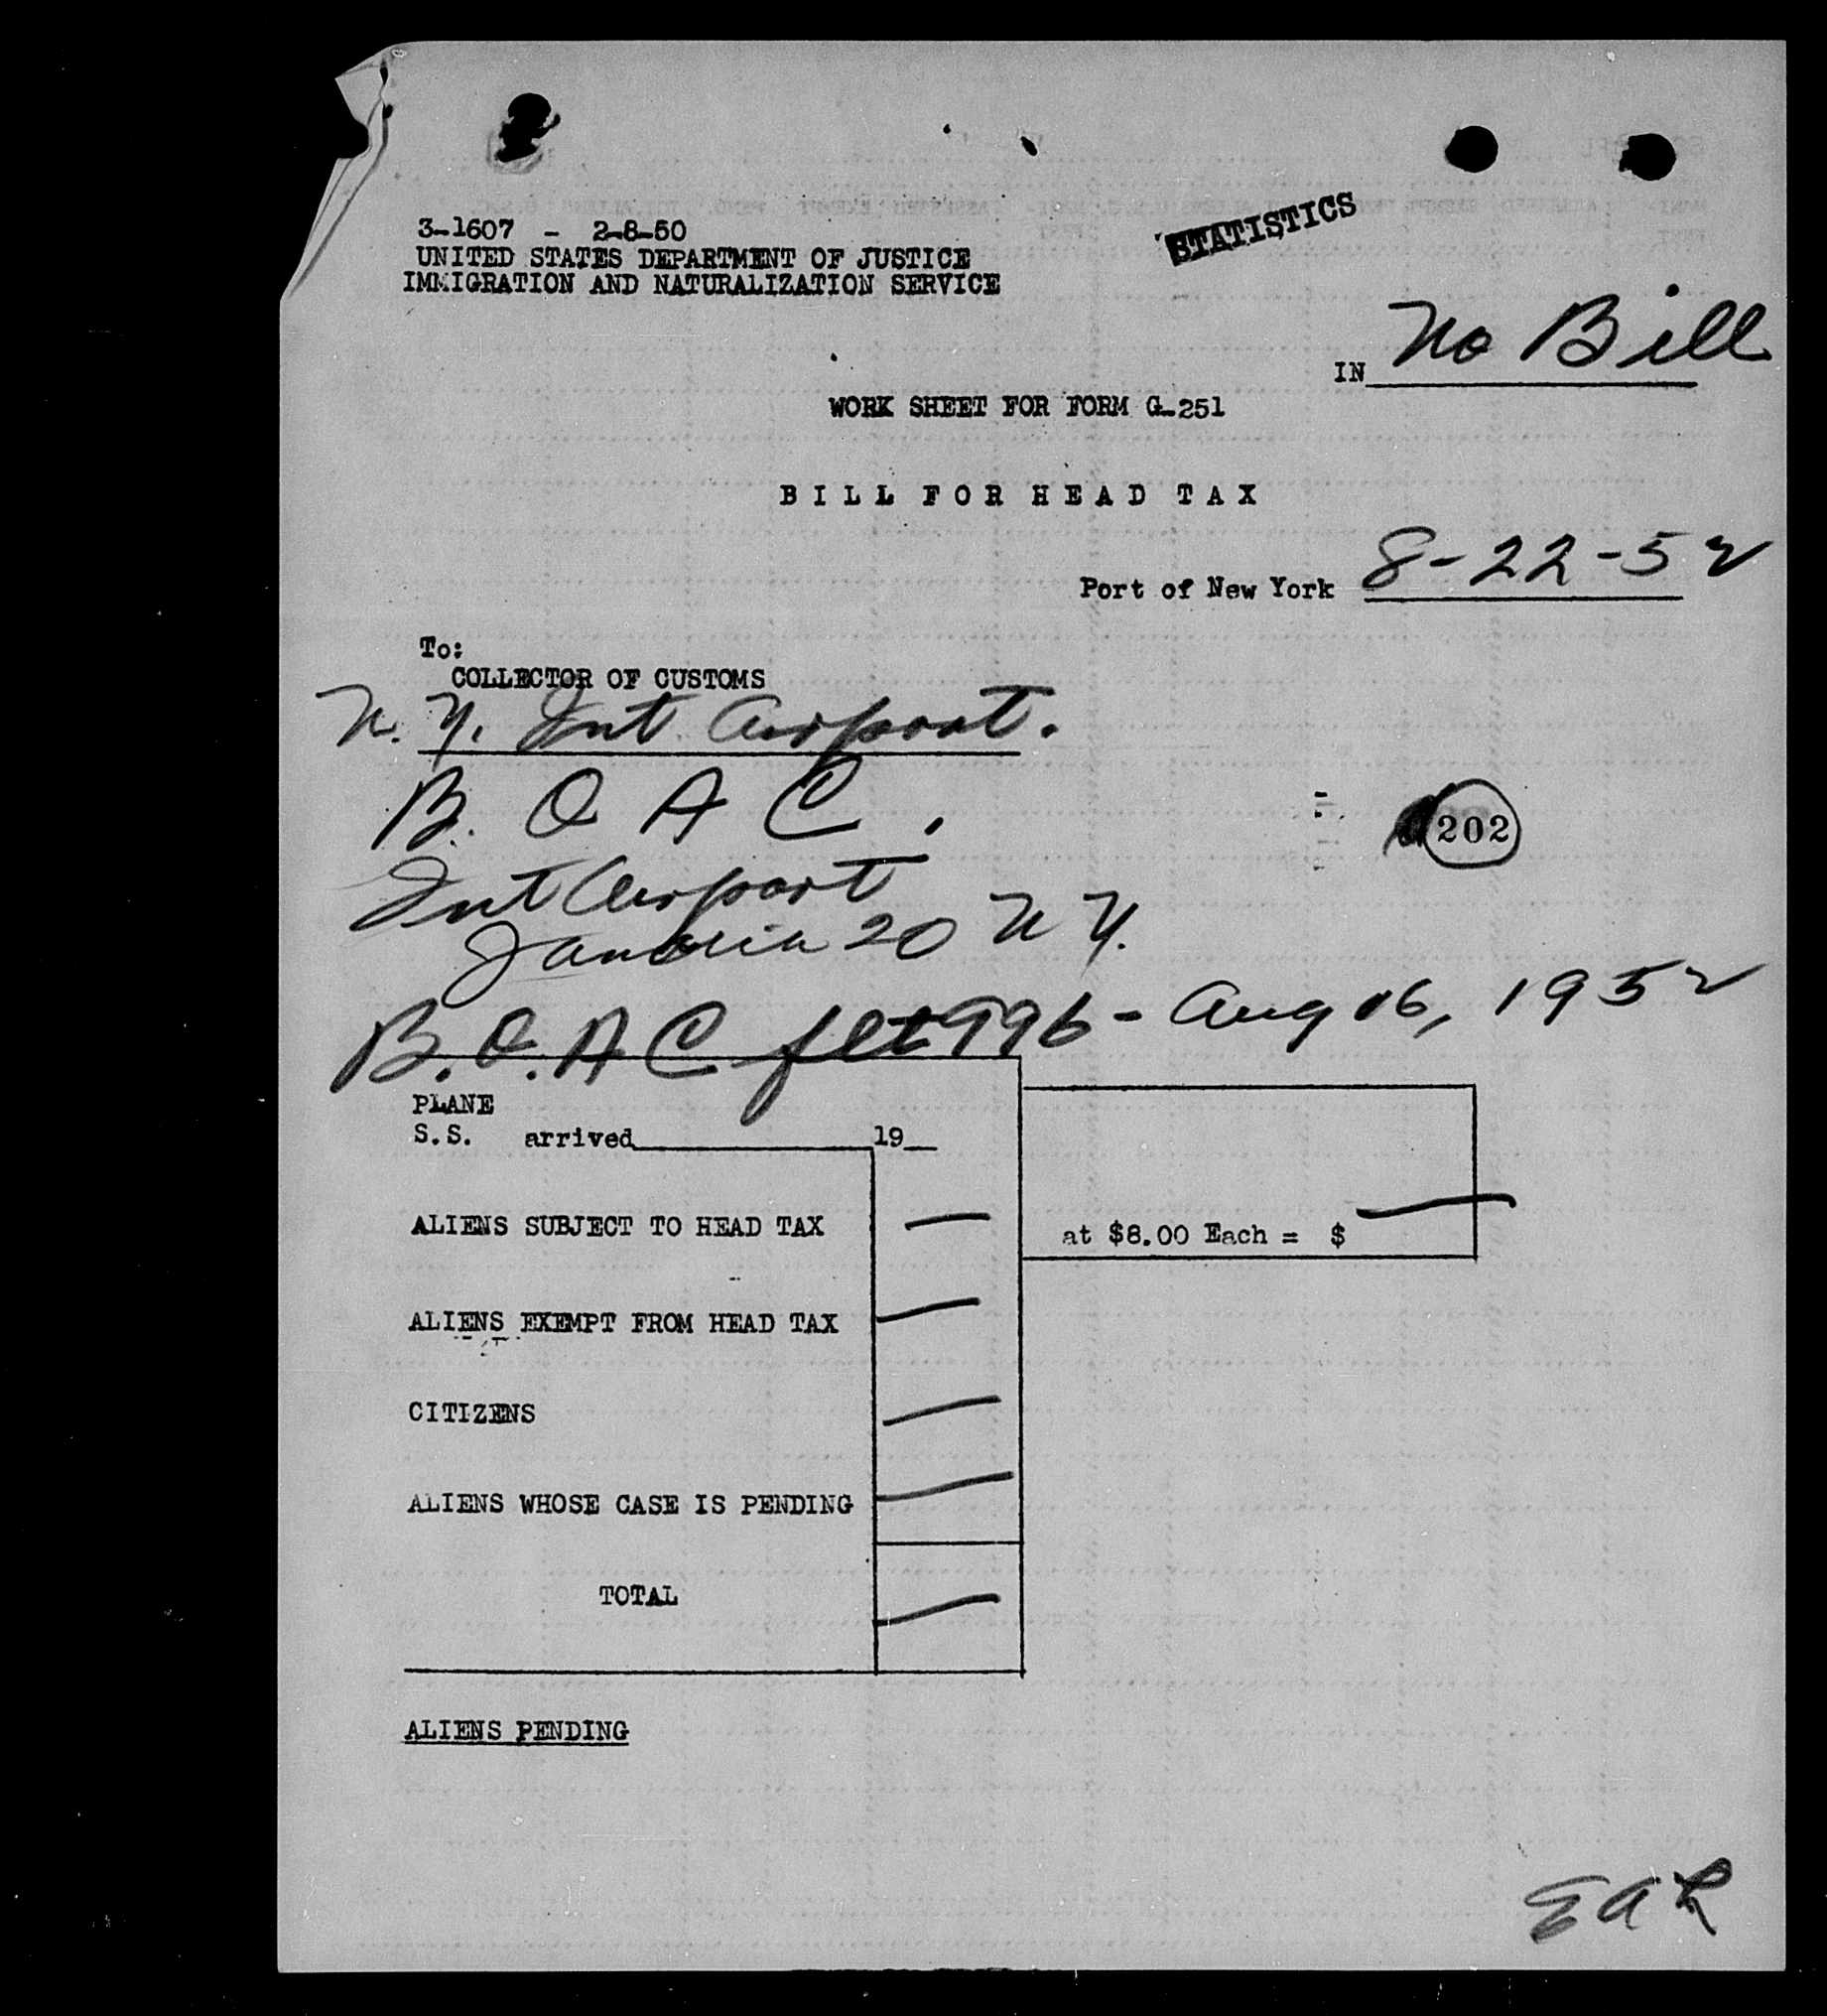 3-1607 - 2-8-50
UNITED STATES DEPARTMENT OF JUSTICE
IMMIGRATION AND NATURALIZATION SERVICE
STATISTICS
IN No Bill
WORK SHEET FOR FORM G-251
BILL FOR HEAD TAX
Port of New York 8-22-52
To:
COLLECTOR OF CUSTOMS
N. Y. Int Airport.
B. O A C.
202
Int Airport
Jamaica 20 N Y.
B. O. A C flt 996 - Aug 16, 1952
PLANE
S.S. arrived 19
ALIENS SUBJECT TO HEAD TAX —
at $8.00 Each = $ —
ALIENS EXEMPT FROM HEAD TAX —
CITIZENS —
ALIENS WHOSE CASE IS PENDING —
TOTAL —
ALIENS PENDING
EAR